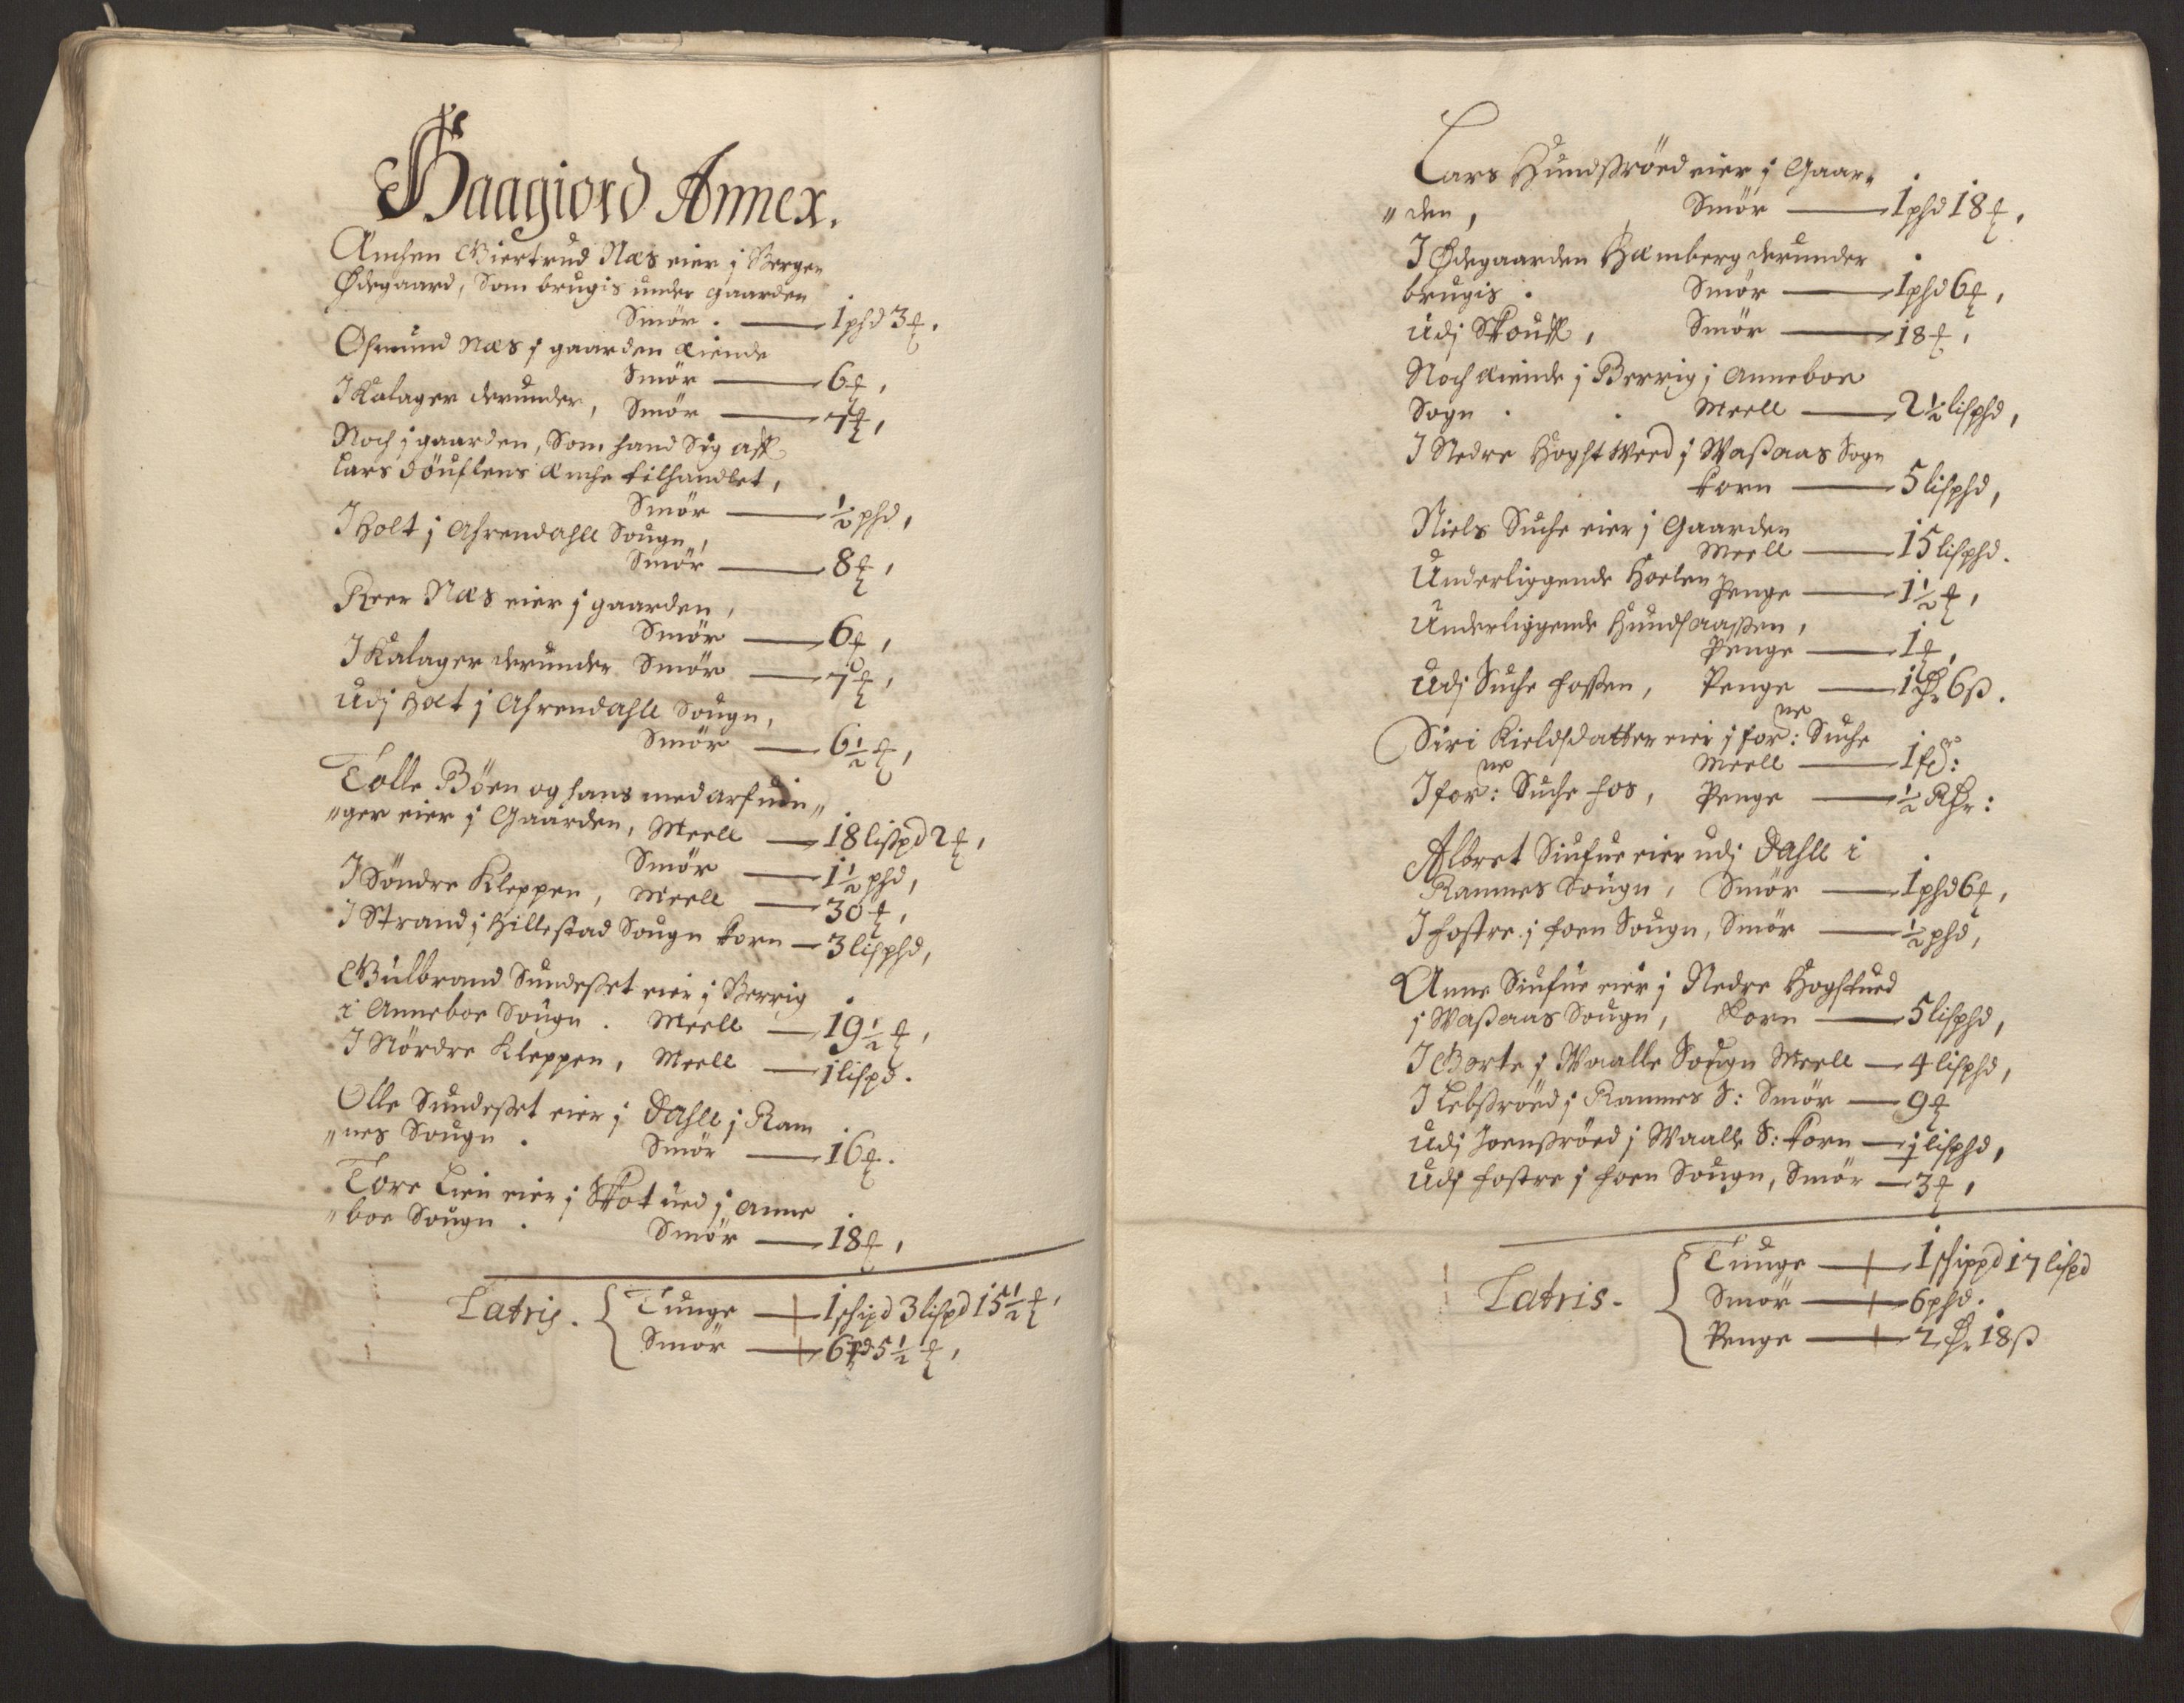 Haagiord Annex.
Enchen Giertrud Næs eier j Bergen
Ødegaard, Som brugis under gaarden
Smör . — 1 phd 3 ₰,
Osmund Næs j gaarden Eiende
Smör — 6 ₰,
I Kalager derunder, Smör — 7 ₰,
Noch j gaarden, Som hand Sig aff
Lars Döuflens Enche tilhandlet,
Smör — ½ phd,
I Holt j Ahrendahll Sougn,
Smör — 8 ₰,
Peer Næs eier j gaarden,
Smör — 6 ₰,
I Kalager derunder Smör — 7 ₰,
Udj Holt j Ahrendahll Sougn,
Smör — 6½ ₰,
Tolle Böen og hans medarfuin„
„ger eier j Gaarden, Meell — 18 lispd 2 ₰,
Smör — 1½ phd,
I Söndre Kleppen, Meell — 30 ₰,
I Strand j Hillestad Sougn Korn — 3 lisphd,
Gulbrand Sundesset eier j Berrig
i Anneboe Sougn . Meell — 19½ ₰,
I Nördre Kleppen, Meell — j lispd.
Olle Sundesset eier j Dahll j Ram
„nes Sougn . Smör — 16 ₰.
Tore Lien eier j Skotued j Anne
„boe Sougn . Smör — 18 ₰,
Latris. Tunge — 1 schipd 3 lispd 15½ ₰,
Smör — 6 pd 5½ ₰,
Lars Hundssröed eier j Gaar„
„den, Smör — 1 phd 18 ₰,
I Ødegaarden Hamberg derunder
brugis . Smör — 1 phd 6 ₰,
Udj Skouff, Smör — 18 ₰,
Noch Eiende j Berrig j Anneboe
Sogn . Meell — 2½ lisphd,
I Nedre Hoghtweed j Wassaas Sogn
Korn — 5 lisphd,
Niels Suche eier j Gaarden
Meell — 15 lisphd.
Underliggende Hoelen Penge — 1½ ₰,
Underliggende Hundsaassen,
Penge — 1 ₰,
Udj Suche fossen, Penge — 1 ₰ 6 ß.
Siri Kieldsdatter eier j for:ne Suche
Meell — 1 fd:
I for:ne Suche fos, Penge — ½ Rdr:
Albret Siufue eier udj Dahll i
Ramnes Sougn, Smör — 1 phd 6 ₰,
I Fostre j Foen Sougn, Smör — ½ phd,
Anne Siufue eier j Nedre Hogstued
j Wassaas Sougn, Korn — 5 lisphd,
I Gorte j Waalle Sougn Meell — 4 lisphd,
I Lebssröed j Ramnes S: Smör — 9 ₰
Udj Joenssröed j Waalle S: Korn — j lisphd,
Udj Fostre j Foen Sougn, Smör — 3 ₰,
Latris. Tunge — 1 schippd 17 lispd
Smör — 6 phd.
Penge — 2 dr 18 ß